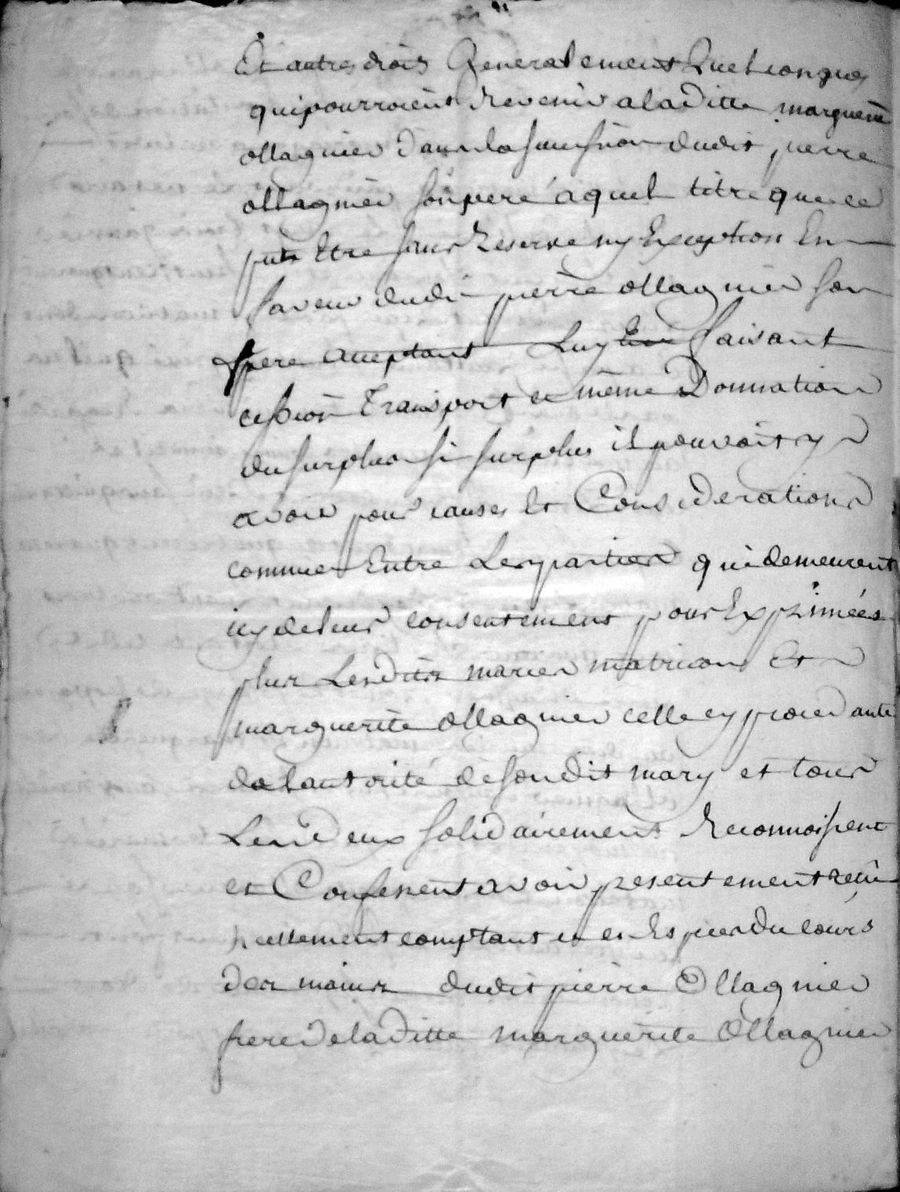 Et autres droits Generalement Quelconques
qui pourroient Revenir a laditte marguerite
ollagnier dans la succession dudit pierre
ollagnier son pere a quel titre que ce
puis Etre sans Reserve ny Exception En
faveur dudit pierre ollagnier son
frere acceptant Luy faisant
cession Transport et même Donnation
du surplus si surplus il pouvoit y
avoir pour causes Et Considerations
connues Entre Les parties qui demeurent
icy de leur consentement pour Exprimées
plus Lesdits mariés matricon Et
marguerite ollagnier celle cy procedante
de lautorité de son dit mary et tous
Les deux solidairement Reconnoissent
et Confessent avoir presentement reçu
reellement comptant et en Espices du cours
des mains dudit pierre Ollagnier
frere de laditte marguerite Ollagnier